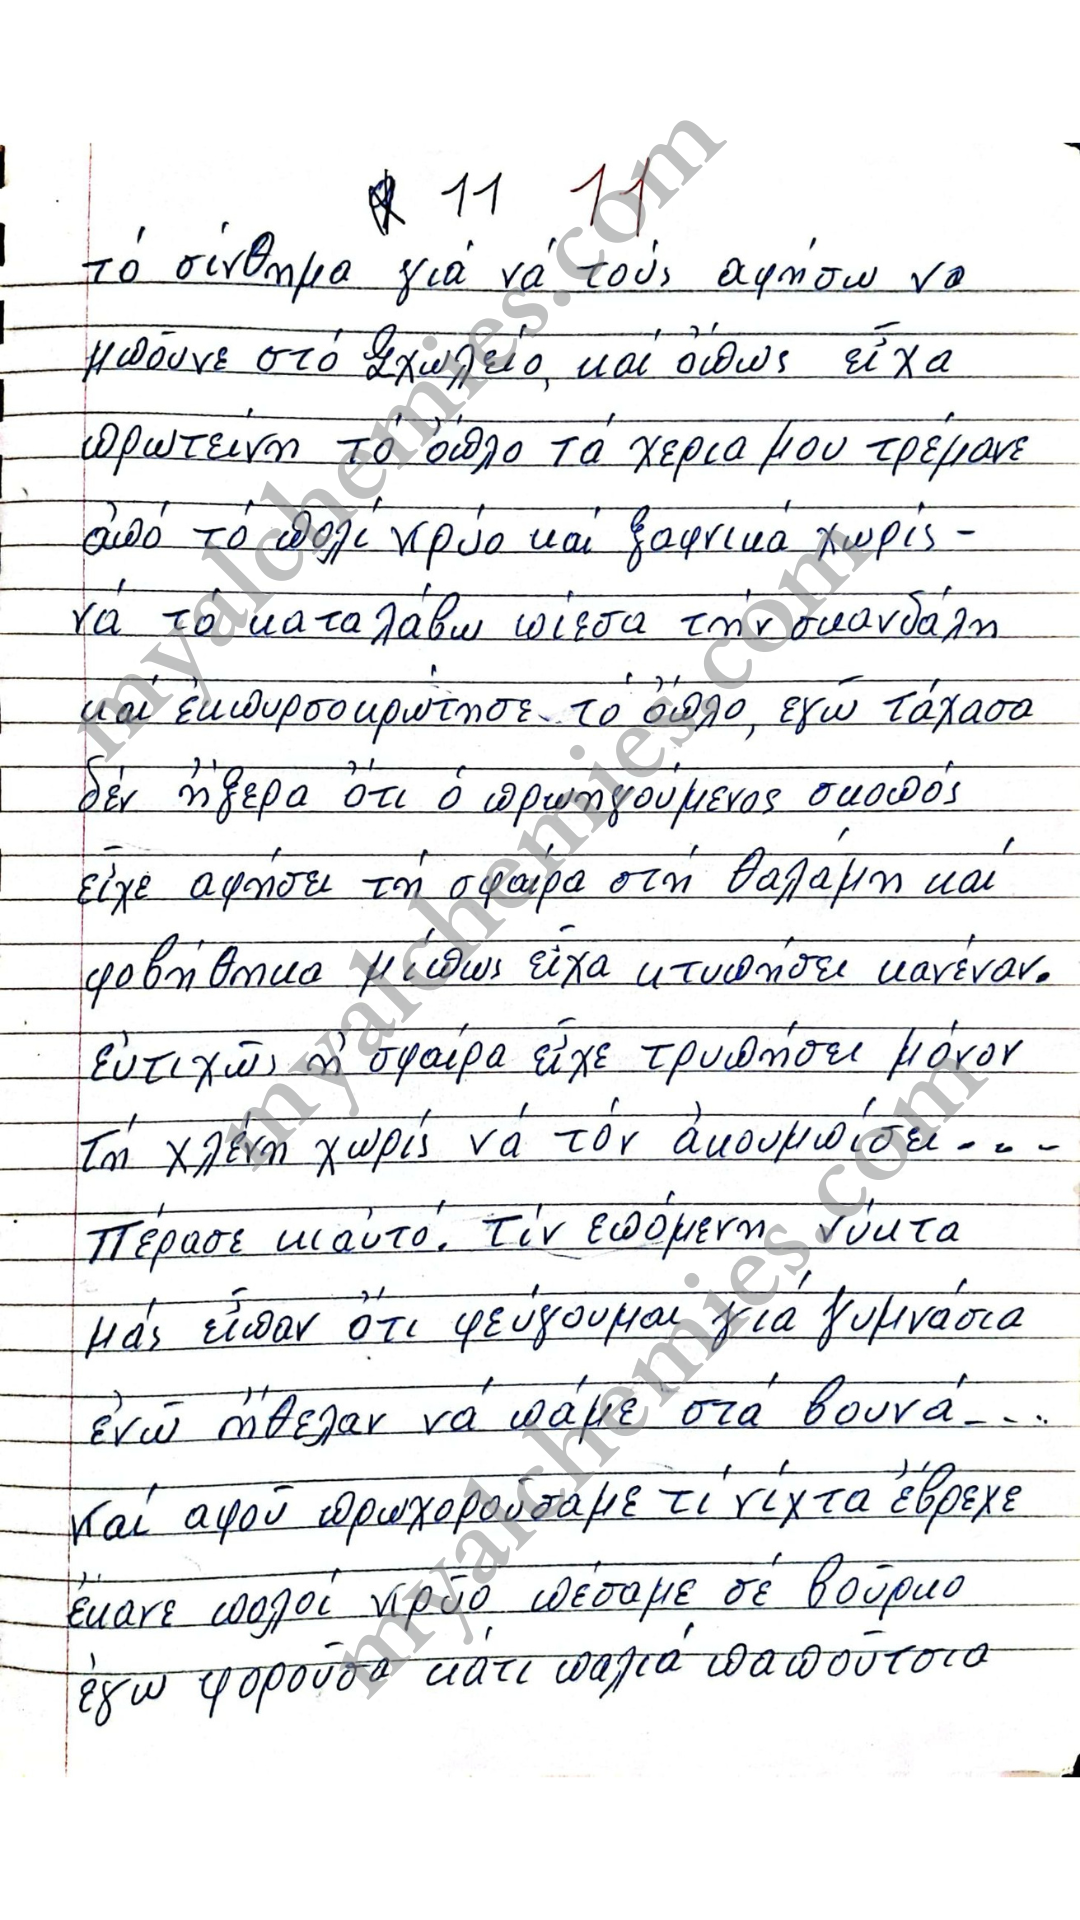 11 11
τό σίνθημα γιά νά τούς αφήσω να
μπούνε στό Σχωλείο, καί όπως εἶχα
πρωτείνη τό ὅπλο τά χερια μου τρέμανε
ἀπό τό πολί κρύο καί ξαφνικά χωρίς -
νά τό καταλάβω πίεσα τήν σκανδάλη
και ἐκπυρσοκρώτησε. τό ὅπλο, εγώ τάχασα
δέν ἤξερα ὅτι ό πρωηγούμενος σκοπός
εἶχε αφήσει τή σφαίρα στή θαλάμη καί
φοβήθηκα μίπως εἶχα κτυπήσει κανέναν.
εὐτιχῶς ἡ σφαίρα εἶχε τρυπήσει μόνον
τή χλένη χωρίς νά τόν ἀκουμπίσει....
Πέρασε κιαὐτό. τίν επόμενη νύκτα
μάς εἶπαν ὅτι φεύγουμαι γιά γυμνάσια
ἐνῶ ἤθελαν νά πάμε στά βουνά....
καί αφοῦ πρωχορούσαμε τί νίχτα ἔβρεχε
έκανε πολοί κρῦο πέσαμε σέ βοῦρκο
ἐγω φοροῦσα κάτι παλιά παποῦτσια
myalchemies.com
myalchemies.com
myalchemies.com